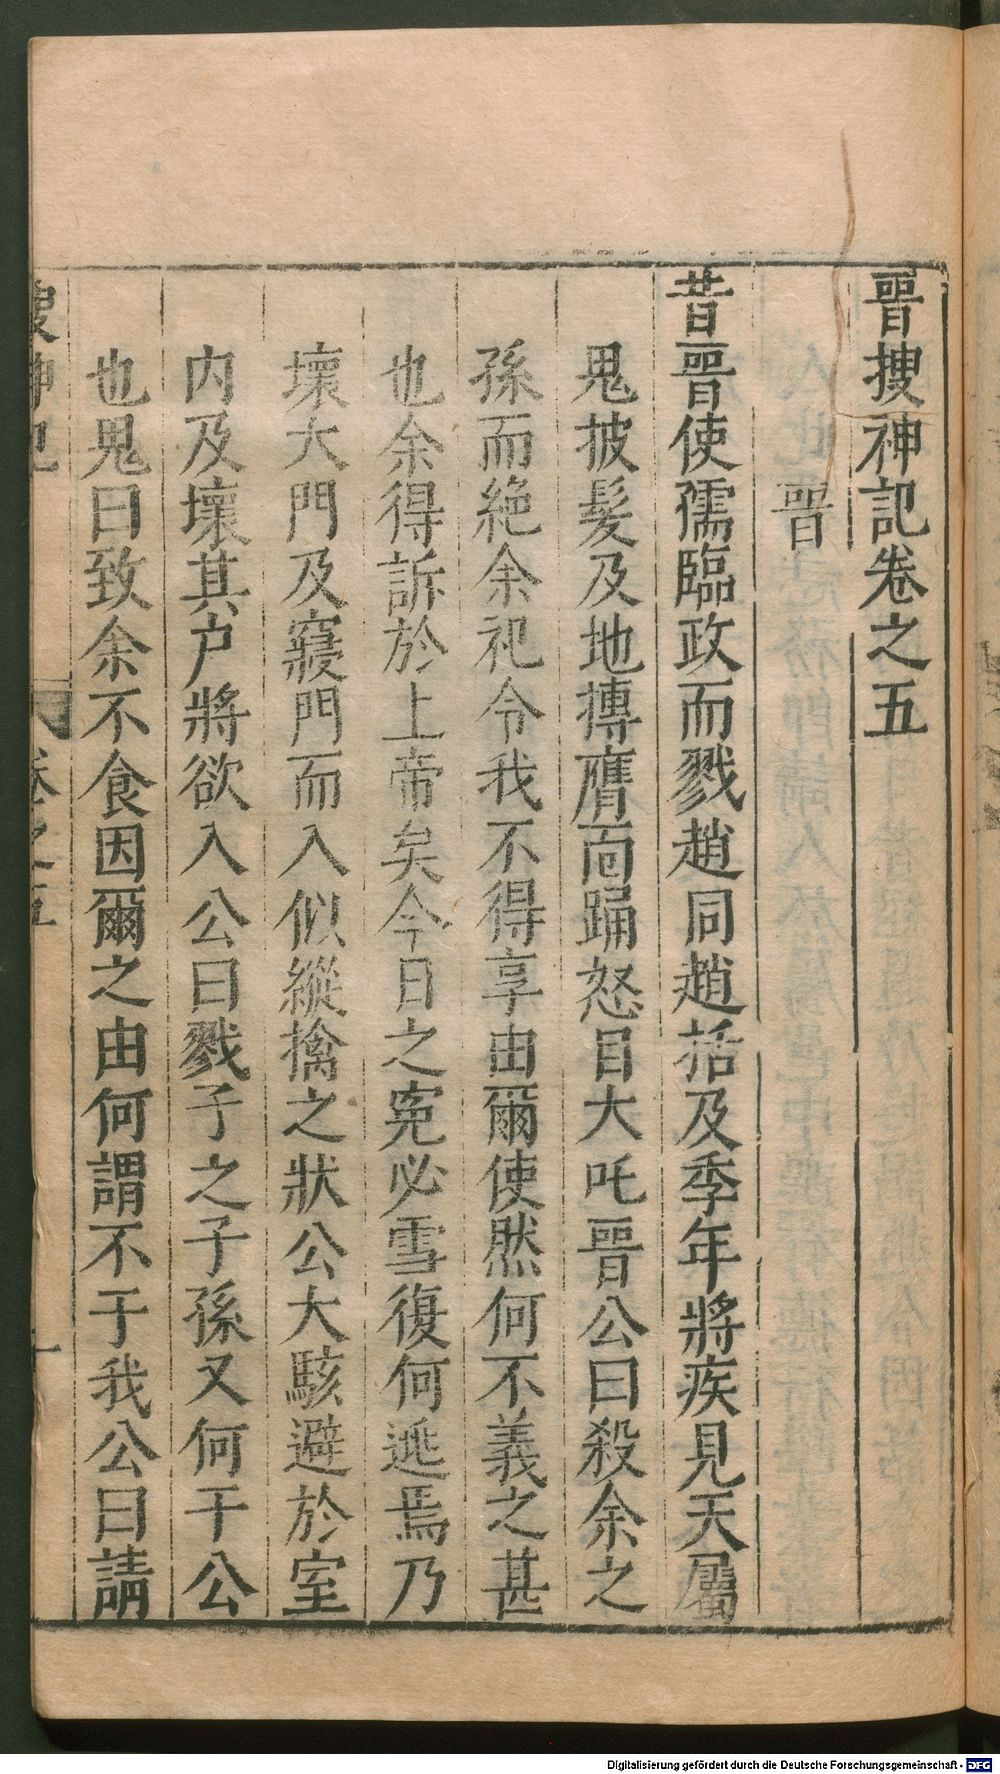 晋搜神記卷之五
晋
昔晋使孺臨政而戮趙同趙括及季年將疾見天屬
鬼披髮及地摶膺而踊怒目大吒晋公曰殺余之
孫而絶余祀令我不得享由爾使然何不義之甚
也余得訴於上帝矣今日之寃必雪復何逃焉乃
壞大門及寢門而入似縱擒之狀公大駭避於室
内及壞其户將欲入公曰戮子之子孫又何干公
也鬼曰致余不食因爾之由何謂不于我公曰請
搜神記
卷之五
一
Digitalisierung gefördert durch die Deutsche Forschungsgemeinschaft - DFG